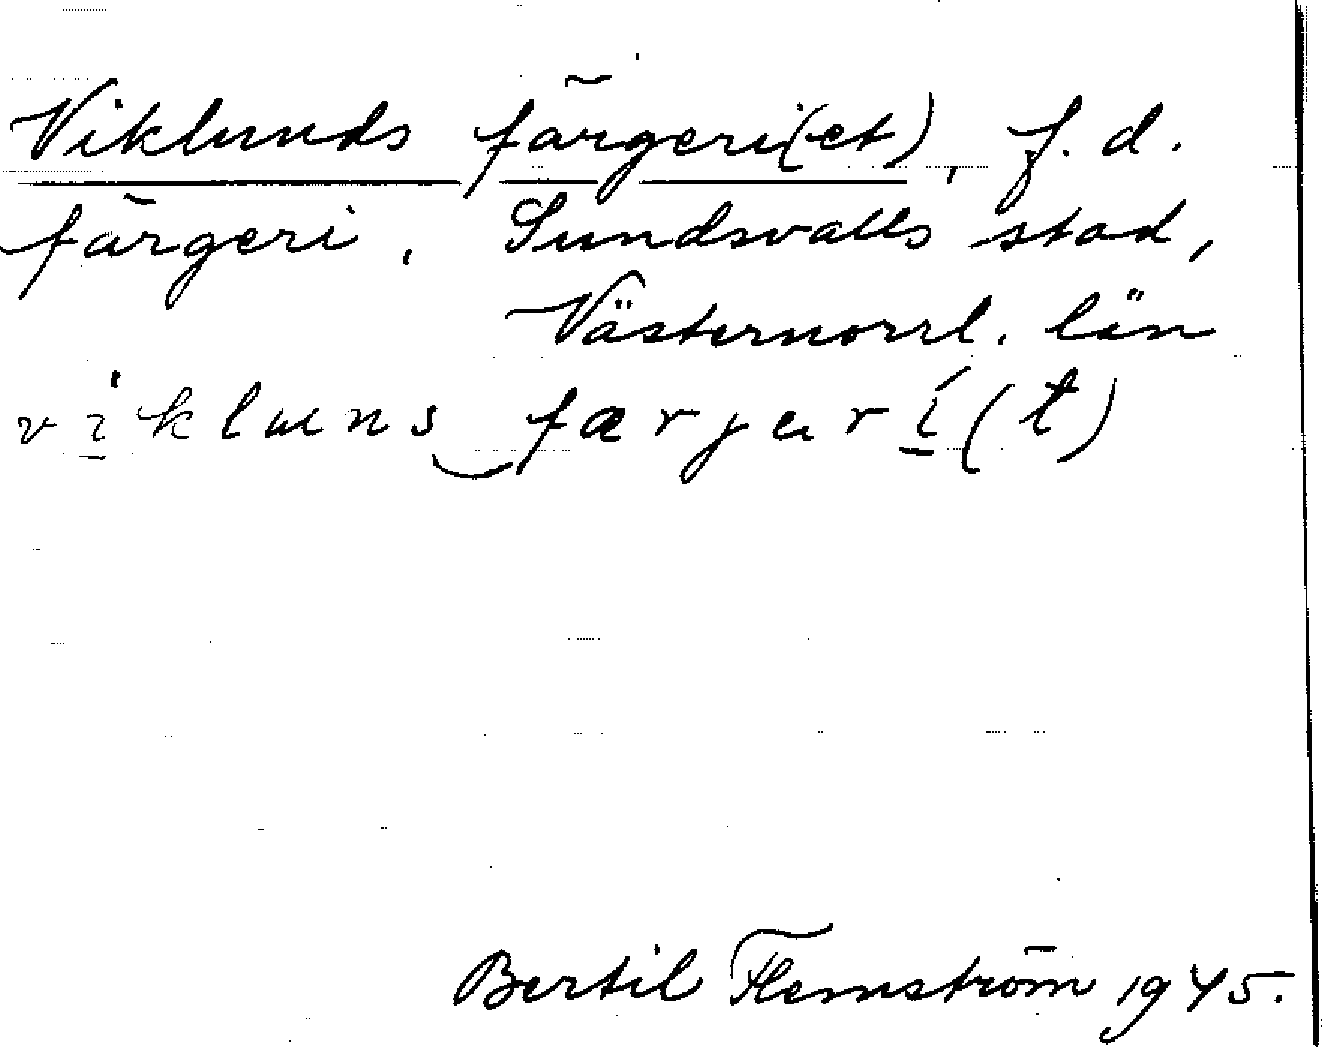 Viklunds färgeri(et), f.d.
färgeri. Sundsvalls stad,
Västernorrl. län
vikluns færjarí(t)
Bertil Flemström 1945.